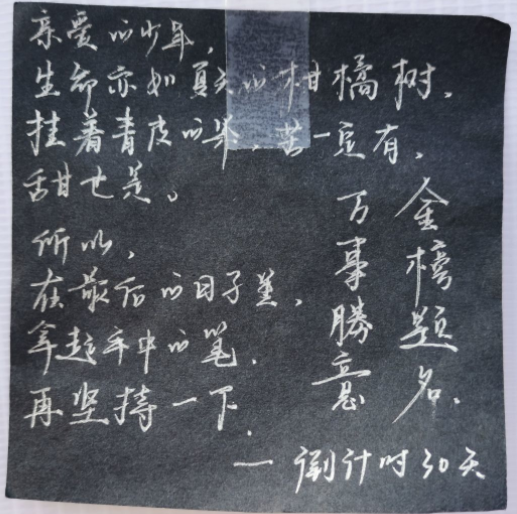 亲爱的少年，
生命亦如夏天的柑橘树，
挂着青皮的果，苦一定有，
甜也是。
所以，
在最后的日子里，
拿起手中的笔，
再坚持一下。
金榜题名，
万事勝意
— 倒计时30天